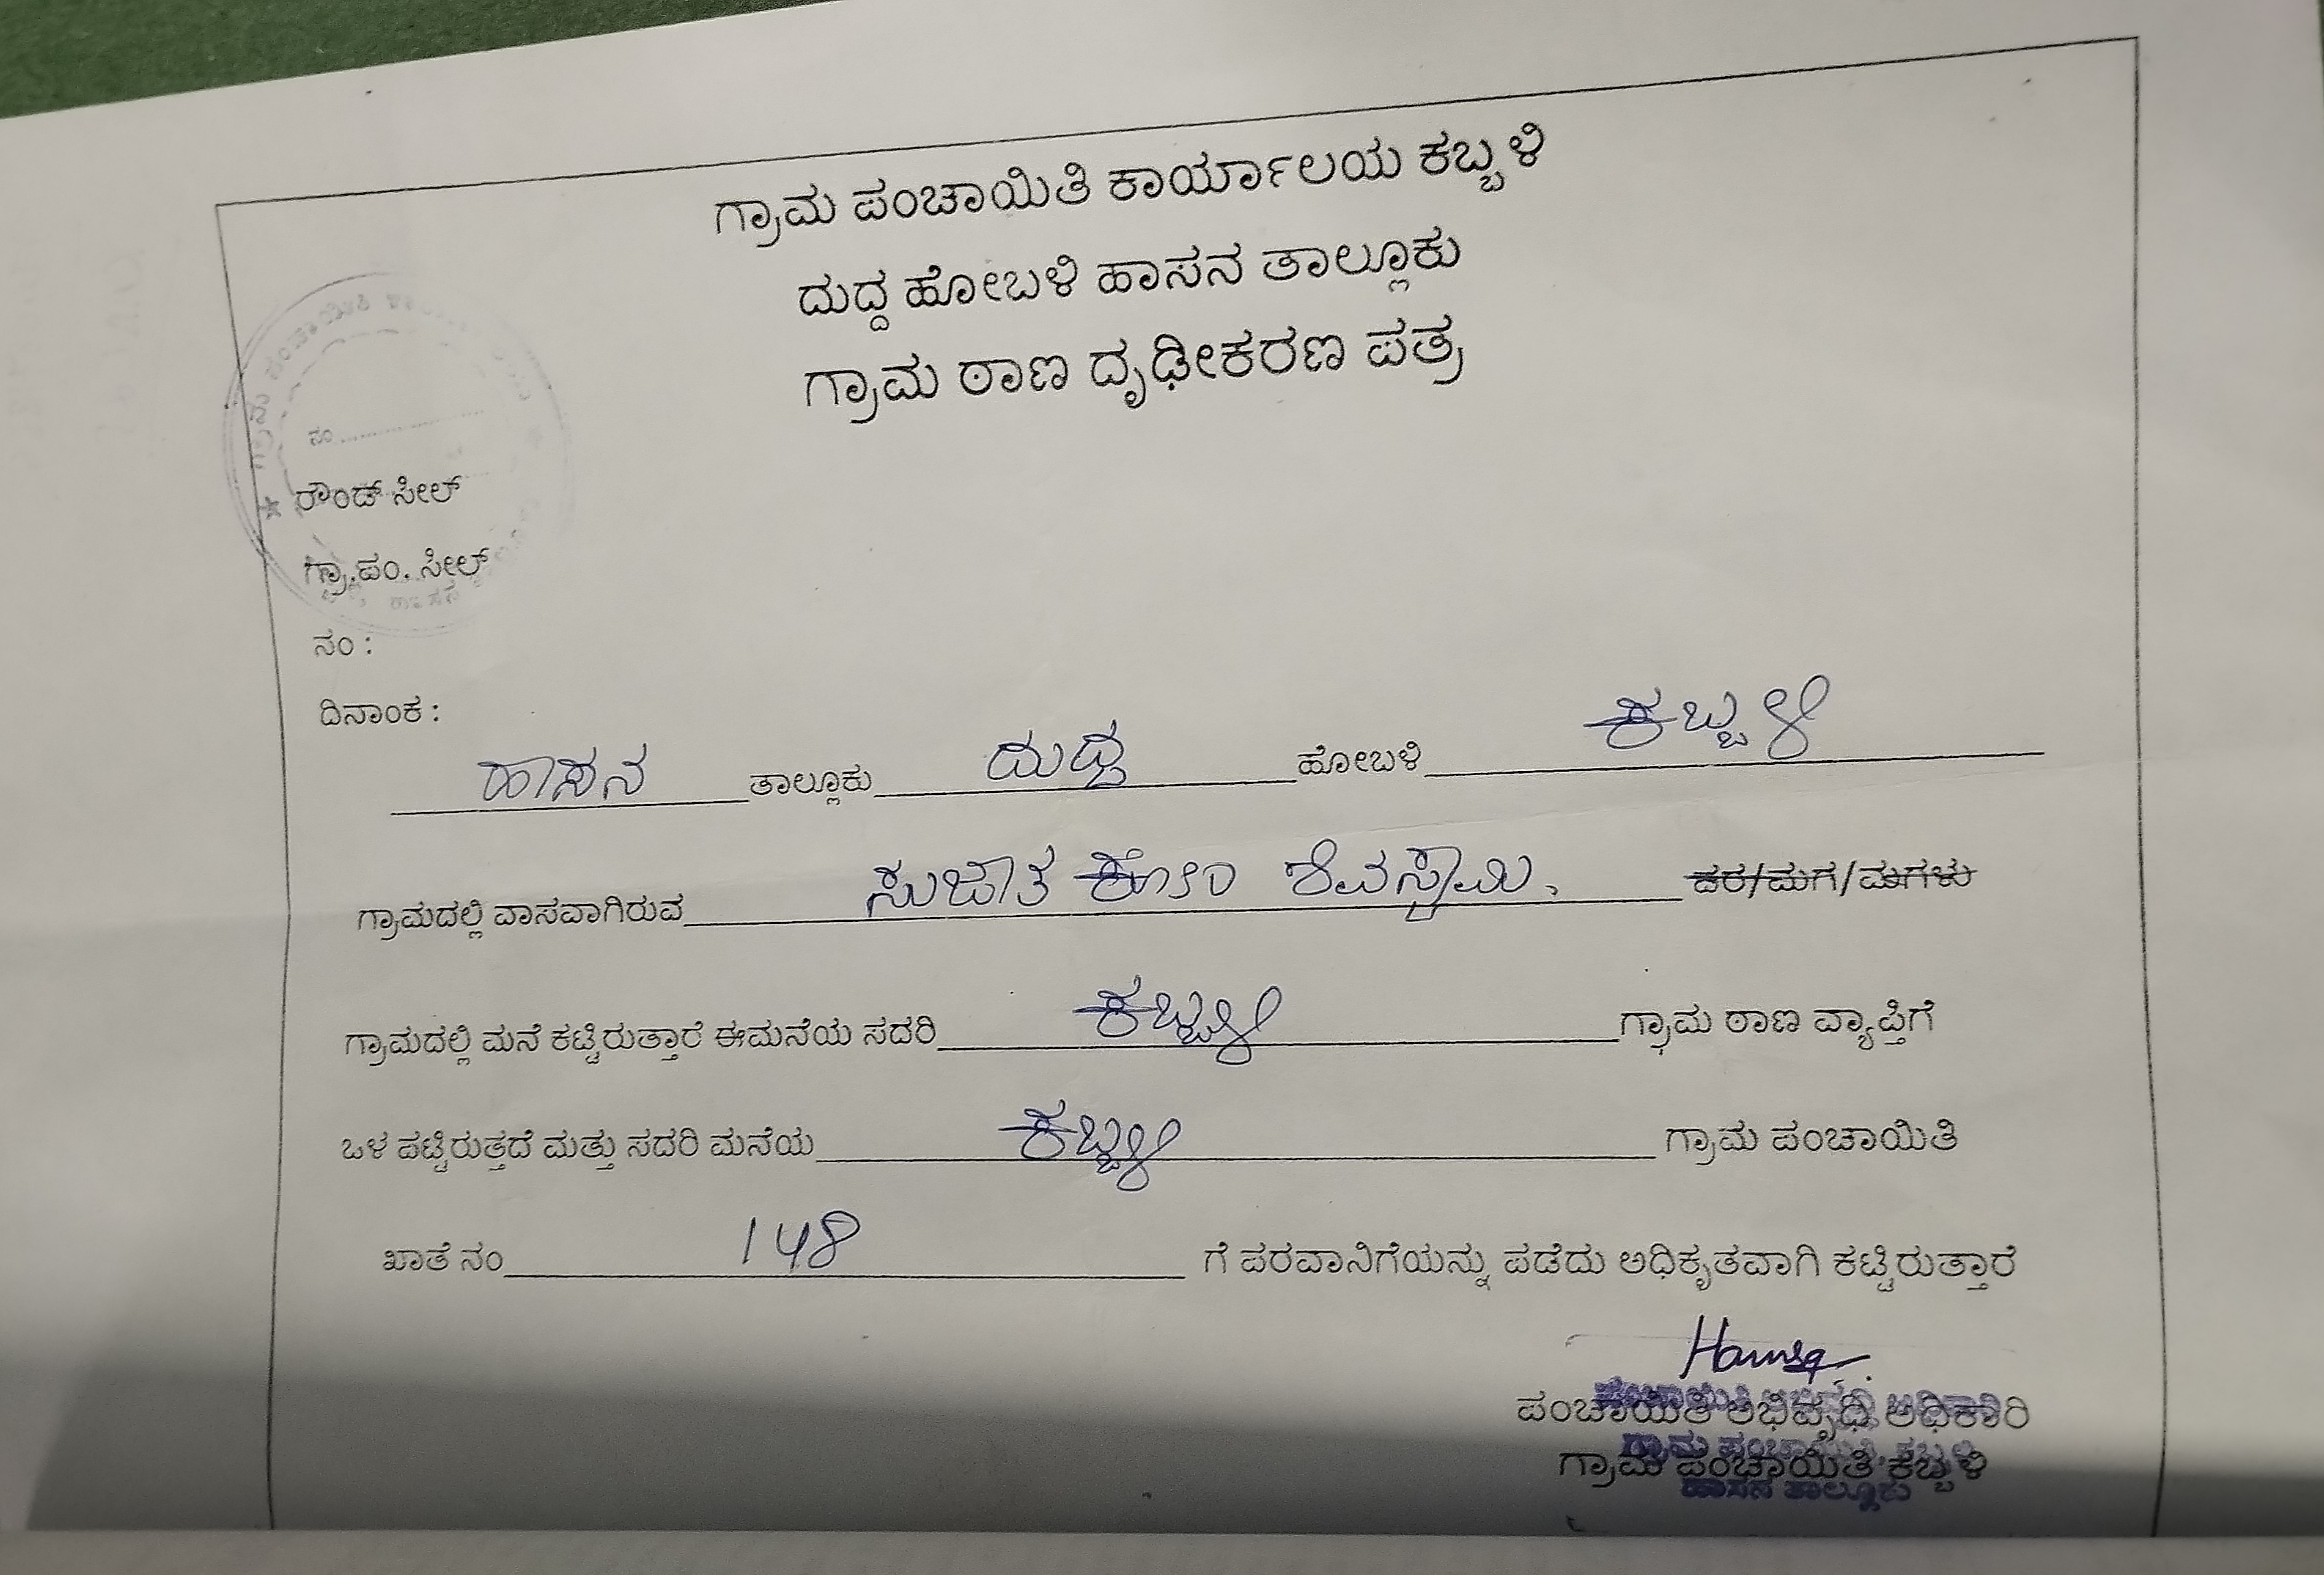 ಗ್ರಾಮ ಪಂಚಾಯಿತಿ ಕಾರ್ಯಾಲಯ ಕಬ್ಬಳಿ
ದುದ್ದ ಹೋಬಳಿ ಹಾಸನ ತಾಲ್ಲೂಕು
ಗ್ರಾಮ ಠಾಣ ದೃಢೀಕರಣ ಪತ್ರ
ನಂ
ರೌಂಡ್ ಸೀಲ್
ಗ್ರಾ.ಪಂ. ಸೀಲ್
ನಂ :
ದಿನಾಂಕ :
ಹಾಸನ ತಾಲ್ಲೂಕು ದುದ್ದ ಹೋಬಳಿ ಕಬ್ಬಳಿ
ಗ್ರಾಮದಲ್ಲಿ ವಾಸವಾಗಿರುವ ಸುಜಾತ ಕೋಂ ಶಿವಸ್ವಾಮಿ. ಕರ/ಮಗ/ಮಗಳು
ಗ್ರಾಮದಲ್ಲಿ ಮನೆ ಕಟ್ಟಿರುತ್ತಾರೆ ಈಮನೆಯ ಸದರಿ ಕಬ್ಬಳಿ ಗ್ರಾಮ ಠಾಣ ವ್ಯಾಪ್ತಿಗೆ
ಒಳ ಪಟ್ಟಿರುತ್ತದೆ ಮತ್ತು ಸದರಿ ಮನೆಯ ಕಬ್ಬಳಿ ಗ್ರಾಮ ಪಂಚಾಯಿತಿ
ಖಾತೆ ನಂ 148 ಗೆ ಪರವಾನಿಗೆಯನ್ನು ಪಡೆದು ಅಧಿಕೃತವಾಗಿ ಕಟ್ಟಿರುತ್ತಾರೆ
ಪಂಚಾಯಿತಿ ಅಭಿವೃಧಿ ಅಧಿಕಾರಿ
ಗ್ರಾಮ ಪಂಚಾಯಿತಿ ಕಬ್ಬಳಿ
ಹಾಸನ ತಾಲ್ಲೂಕು